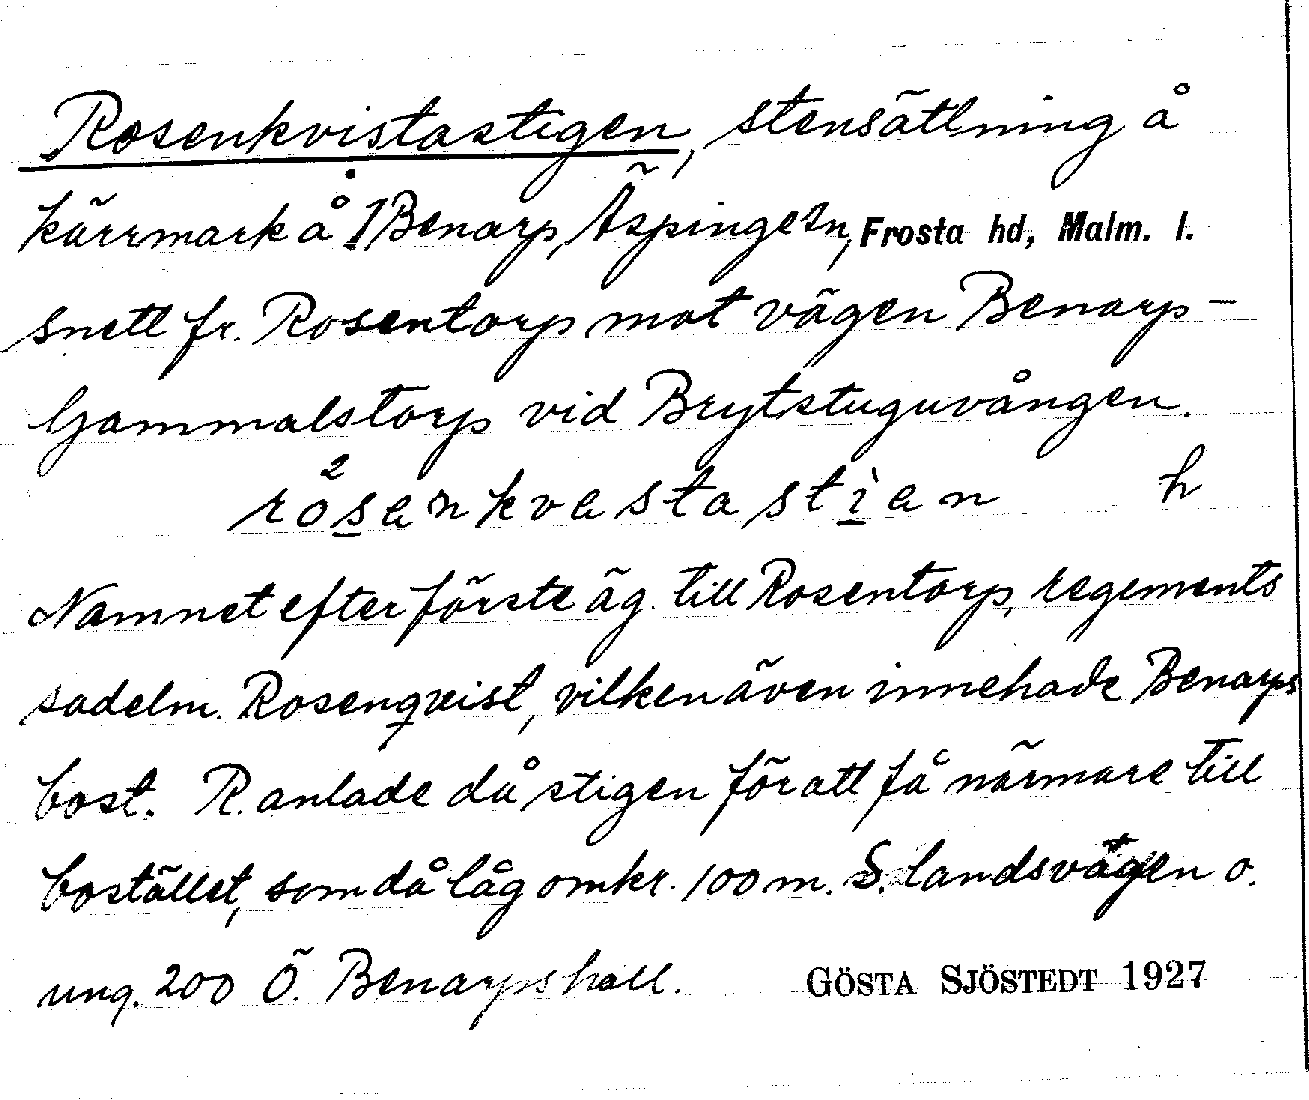 Rosenkvistastigen, stensättning å
kärrmark å 1 Benarp, Äspinge sn, Frosta hd, Malm. l.
snett fr. Rosentorp mot vägen Benarp-
Gammalstorp vid Brytstuguvången.
rå²senkvestastìen h
Namnet efter förste äg. till Rosentorp, regements
sadelm. Rosenqvist, vilken även innehade Benarps
bost. R. anlade då stigen för att få närmare till
bostället, som då låg omkr. 100 m. S. landsvägen o.
ung. 200 Ö. Benarps hall.
GÖSTA SJÖSTEDT 1927